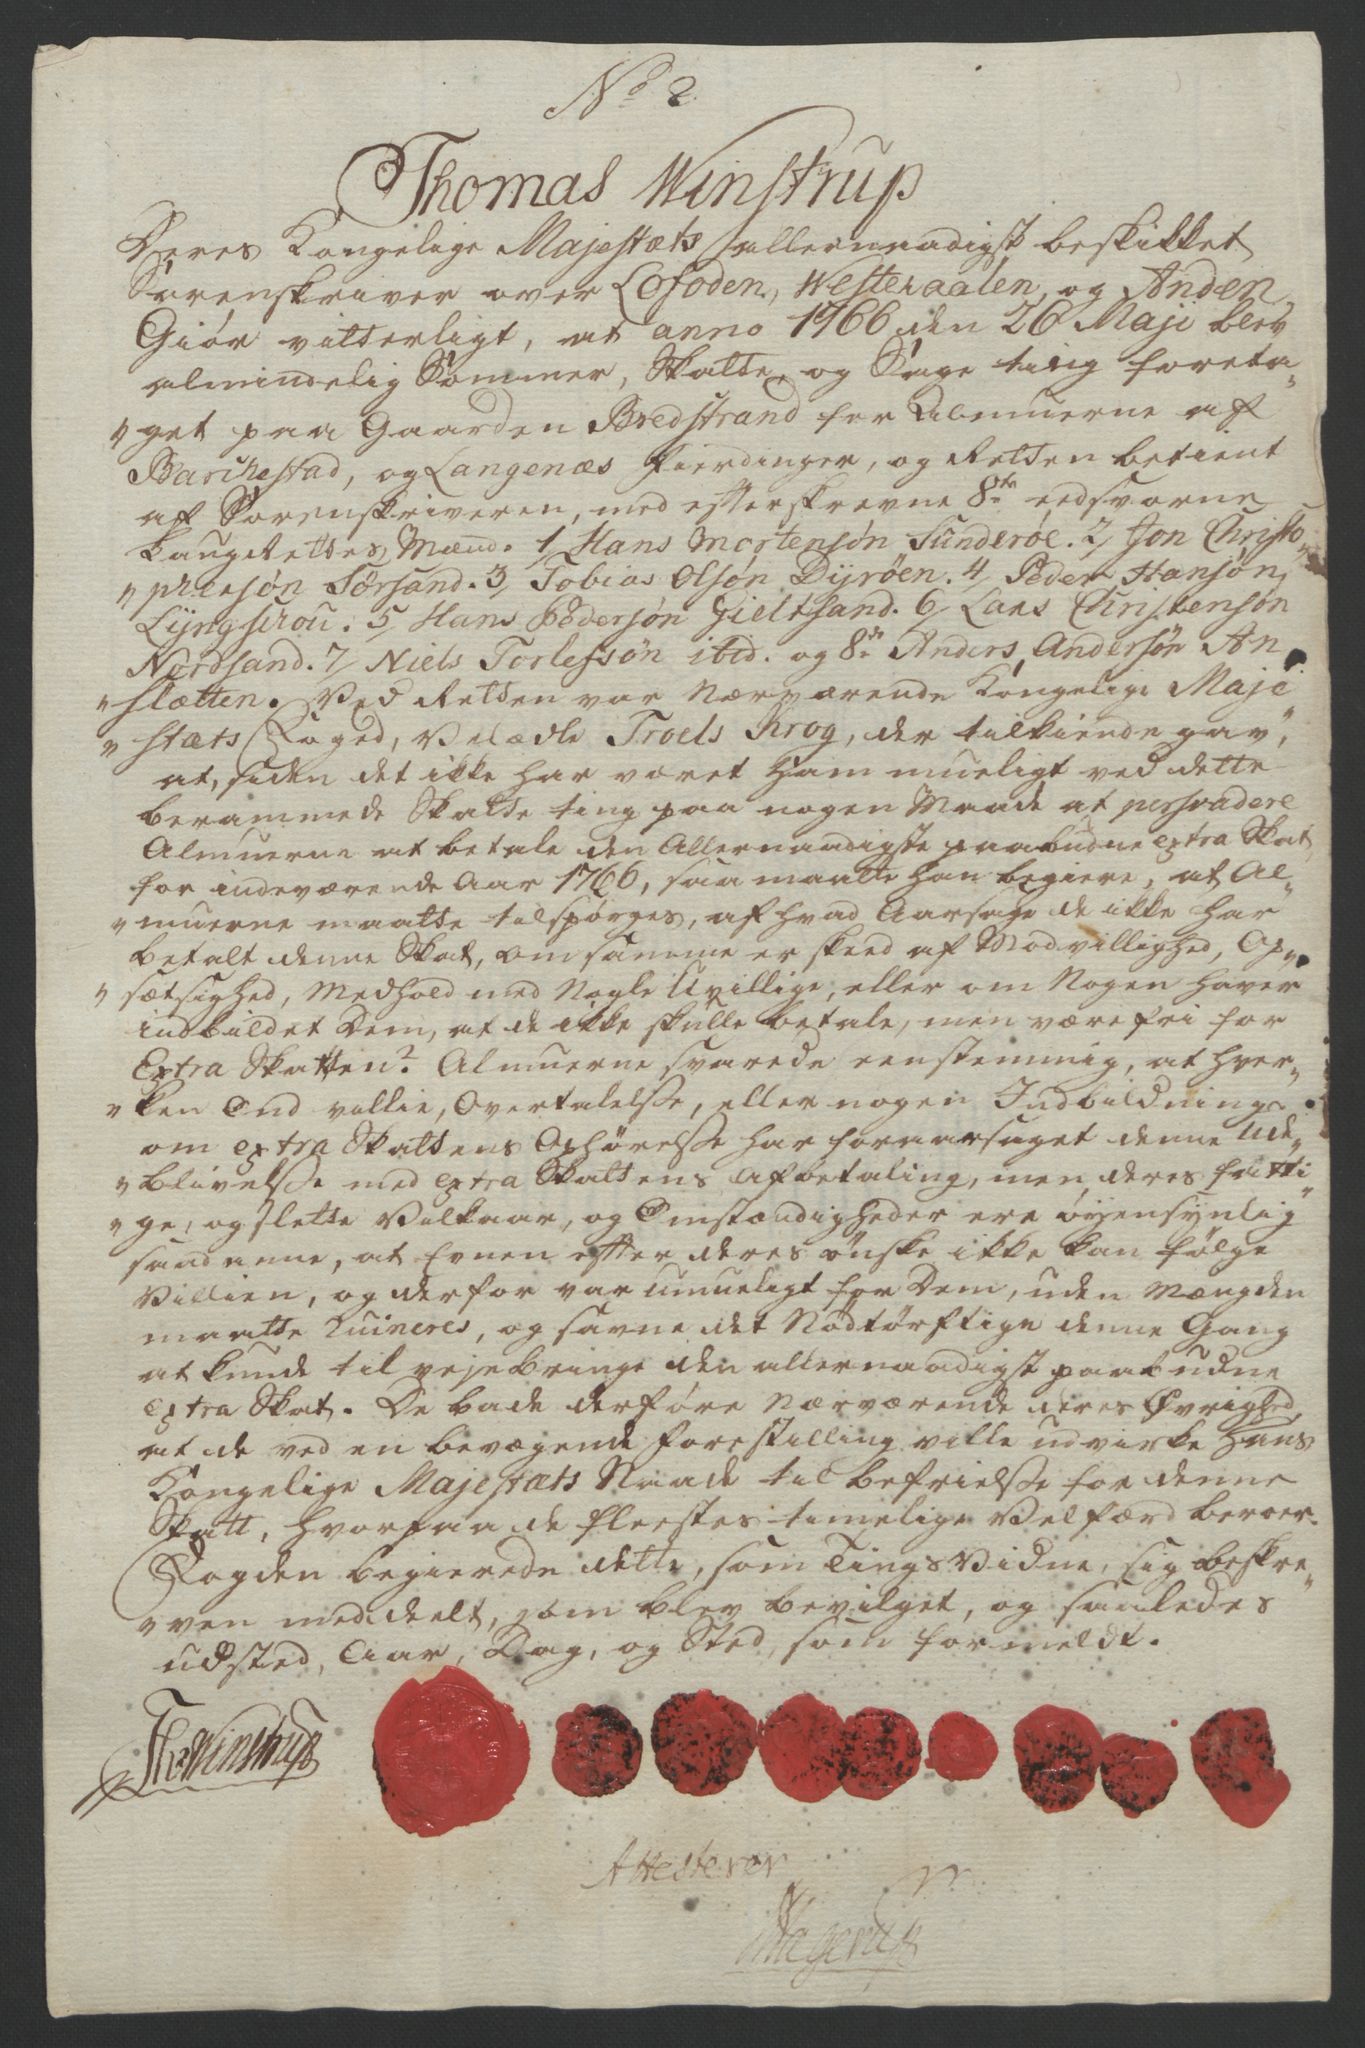 No 2.
Thomas Winstrup
Deres Kongelige Majestæts allernaadigst beskikket
Sorenskriver over Lofoden, Westeraalen, og Anden,
Giör vitterligt, at anno 1766 den 26 Maji blev
almindelig Sommer, Skatte, og Sage ting foreta„
„get paa Gaarden Bredstrand for Almuerne af
Barckestad, og Langenæs fierdinger, og Retten betient
af Sorenskriveren, med efterskrevne 8te eedsvorne
Laugrettes Mænd. 1, Hans Mortensøn Sunderøe. 2, Jon Christo„
„phersøn Sørsand. 3, Tobias Olsøn Dyrøen. 4, Peder Hansøn
Lyngschou. 5, Hans Pedersøn Gieltsand. 6, Lars Christensøn
Nordsand. 7, Niels Torlefsøn ibid. og 8de Anders Andersøn An„
„slætten. Ved Retten var Nærværende Kongelige Maje„
„stæts Foged, Velædle Troels Krog, der tilkiende gav,
at, siden det ikke har været ham mueligt ved dette
berammede Skatte ting paa nogen Maade at persvadere
Almuerne at betale den Allernaadigste paabudne extra Skat
for indeværende Aar 1766, saa maatte han begiere, at Al„
„muerne maatte tilspørges, af hvad Aarsage de ikke har
betalt denne Skat, om samme er skeed af Modvillighed, Op„
„sætsighed, Medhold med Nogle Uvillige, eller om Nogen haver
indbildet Dem, at de ikke skulle betale, men være fri for
Extra Skatten? Almuerne svarede eenstemmig, at hver„
„ken Ond villie, Overtalelsse, eller nogen Indbildning
om extra Skattens Ophörelsse har foraarsaget denne Ude„
„blivelsse med extra Skattens afbetaling, men deres fatti„
„ge, og slette Vilkaar, og Omstændigheder ere øyensynlig
saadanne, at Evnen efter deres ønske ikke kan følge
Villien, og derfor var umueligt for Dem, uden Mængden
maatte Ruineres, og savne det Nödtörftige denne Gang
at kunde til veje bringe den allernaadigst paabudne
extra Skat. De bade derföre Nærværende deres Øvrighed,
at de ved en bevægende forestilling ville udvirke Hans
Kongelige Majestæts Naade til befrielsse for denne
Skatt, hvorpaa de fleestes timelige Velfærd beroer.
Fogden begierede dette, som Tings Vidne, sig beskre„
„ven meddeelt, som blev bevilget, og saaledes
udsted, Aar, Dag, og Sted, som formeldt.
Tho: Winstrup
Attesterer
Hagerup